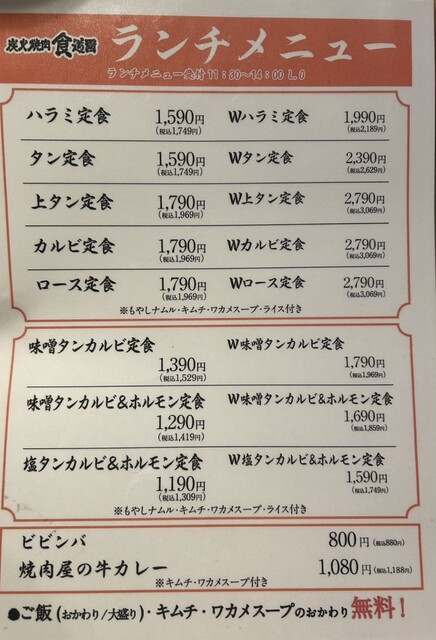 炭火焼肉 食道園 ランチメニュー
ランチメニュー受付11:30〜14:00 L.O
ハラミ定食 1,590円 (税込1,749円) Wハラミ定食 1,990円 (税込2,189円)
タン定食 1,590円 (税込1,749円) Wタン定食 2,390円 (税込2,629円)
上タン定食 1,790円 (税込1,969円) W上タン定食 2,790円 (税込3,069円)
カルビ定食 1,790円 (税込1,969円) Wカルビ定食 2,790円 (税込3,069円)
ロース定食 1,790円 (税込1,969円) Wロース定食 2,790円 (税込3,069円)
※もやしナムル・キムチ・ワカメスープ・ライス付き
味噌タンカルビ定食 1,390円 (税込1,529円) W味噌タンカルビ定食 1,790円 (税込1,969円)
味噌タンカルビ&ホルモン定食 1,290円 (税込1,419円) W味噌タンカルビ&ホルモン定食 1,690円 (税込1,859円)
塩タンカルビ&ホルモン定食 1,190円 (税込1,309円) W塩タンカルビ&ホルモン定食 1,590円 (税込1,749円)
※もやしナムル・キムチ・ワカメスープ・ライス付き
ビビンバ 800円 (税込880円)
焼肉屋の牛カレー 1,080円 (税込1,188円)
※キムチ・ワカメスープ付き
●ご飯(おかわり/大盛り)・キムチ・ワカメスープのおかわり 無料!